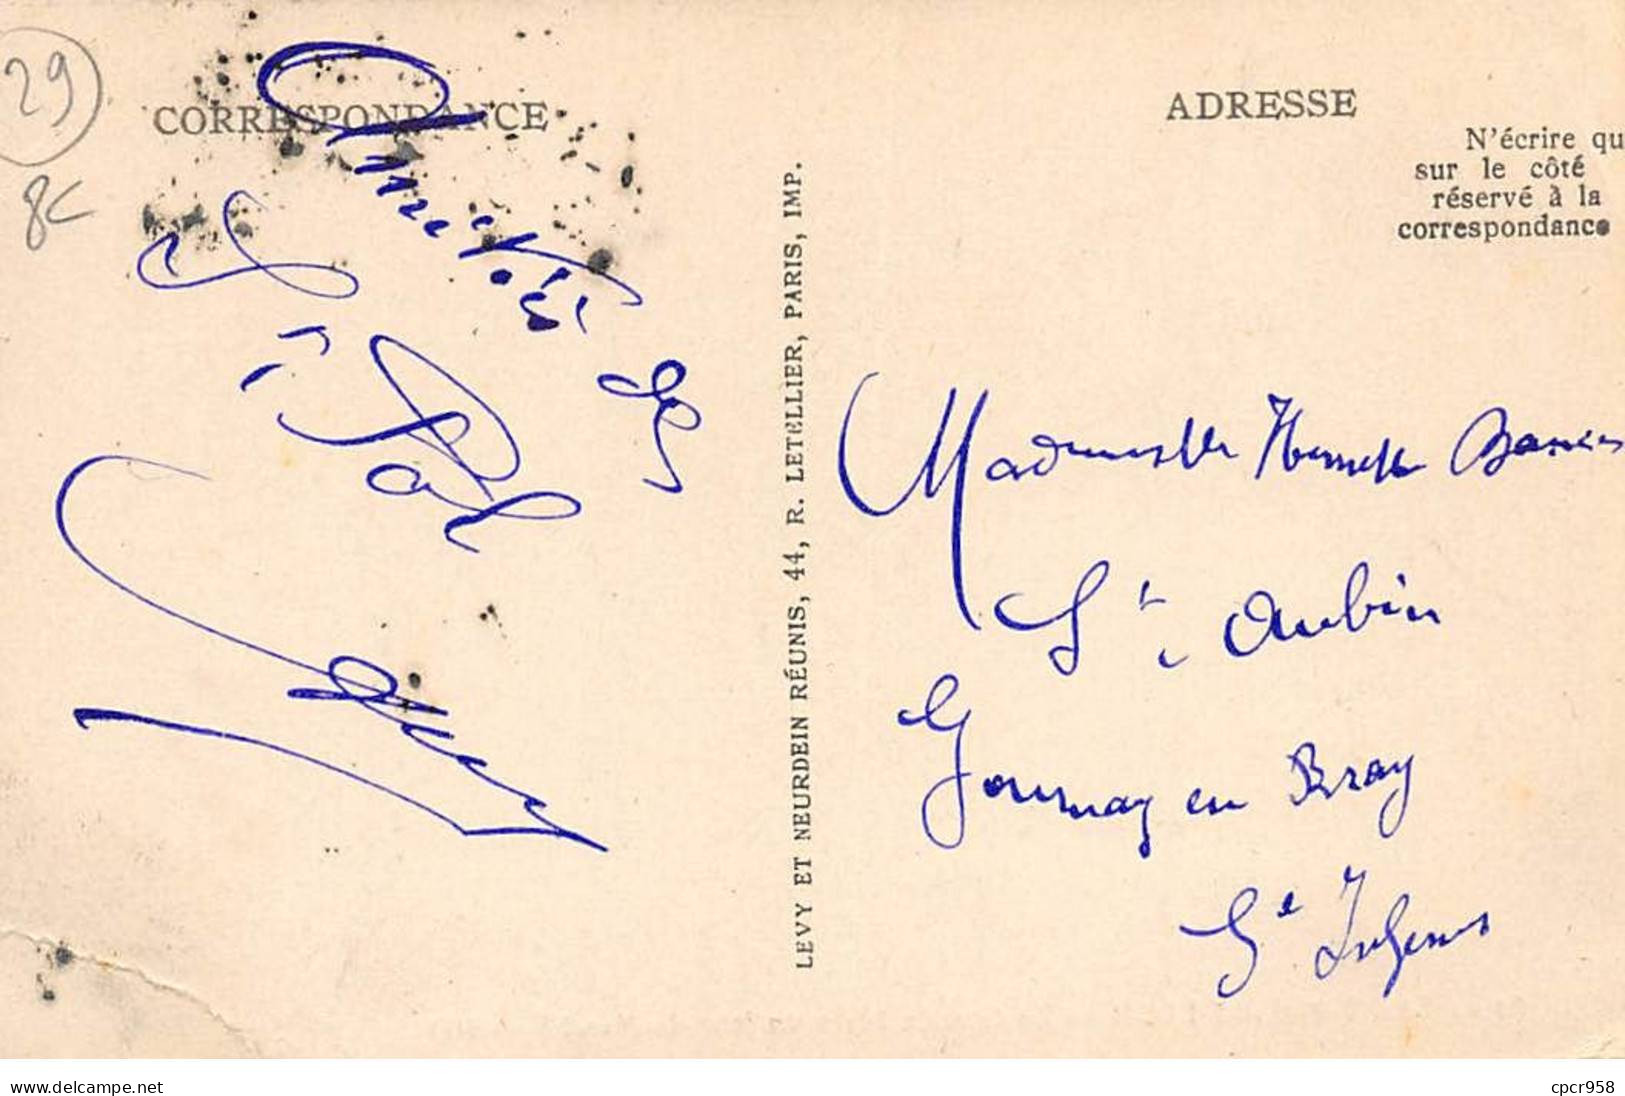 29
8€
CORRESPONDANCE
Amitiés
de
St Pol
LEVY ET NEURDEIN RÉUNIS, 44, R. LETELLIER, PARIS, IMP.
ADRESSE
N'écrire qu
sur le côté
réservé à la
correspondance
Mademoiselle
St Aubin
Gournay en Bray
Se Inferre
cpcr958
www.delcampe.net